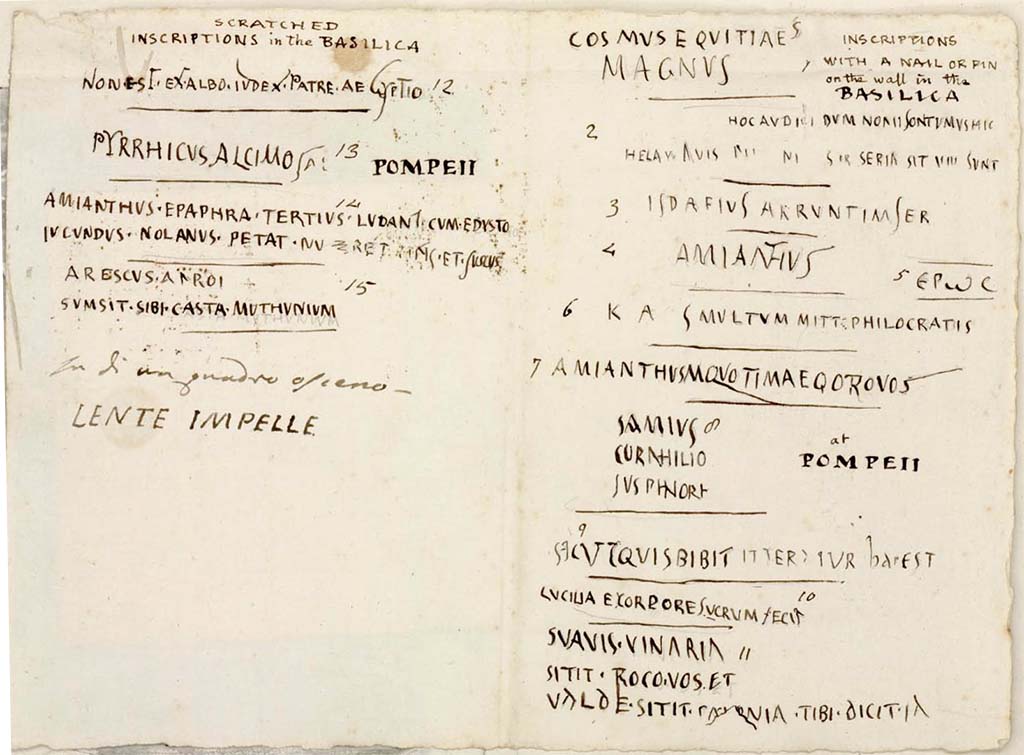 SCRATCHED
INSCRIPTIONS in the BASILICA
NONEST·EX·ALBO·IVDEX·PATRE·AEGYPTIO 12
PYRRHICVS ALCIMO 13
POMPEII
14
AMIANTHVS·EPAPHRA·TERTIVS·LVDANT·CVM·EDYSTO
IVCVNDVS·NOLANVS·PETAT·NV
ARESCVS·
15
SVMSIT·SIBI·CASTA·MVTHVNIVM
Su di un quadro osceno —
LENTE IMPELLE
COSMVS EQVITIAES
MAGNVS
INSCRIPTIONS
WITH A NAIL OR PIN
on the wall in the
BASILICA
2
HOC AVDI DVM NON
SERIA SIT VIII SVNT
3
4 AMIANTIVS
5 EPWC
6 K A S MVLTVM MITT PHILOCRATIS
7 AMIANTHVSMQVOTIMAEQOROVOS
SAMIVS 8
CVRNHILIO
SVSPHNORI
at
POMPEII
9
QVISBIBIT
LVCILIA EXCORPORE LVCRVM FECIT 10
SVAVIS·VINARIA 11
SITIT·ROCO·VOS·ET
VALDE·SITIT· TIBI·DICIT·